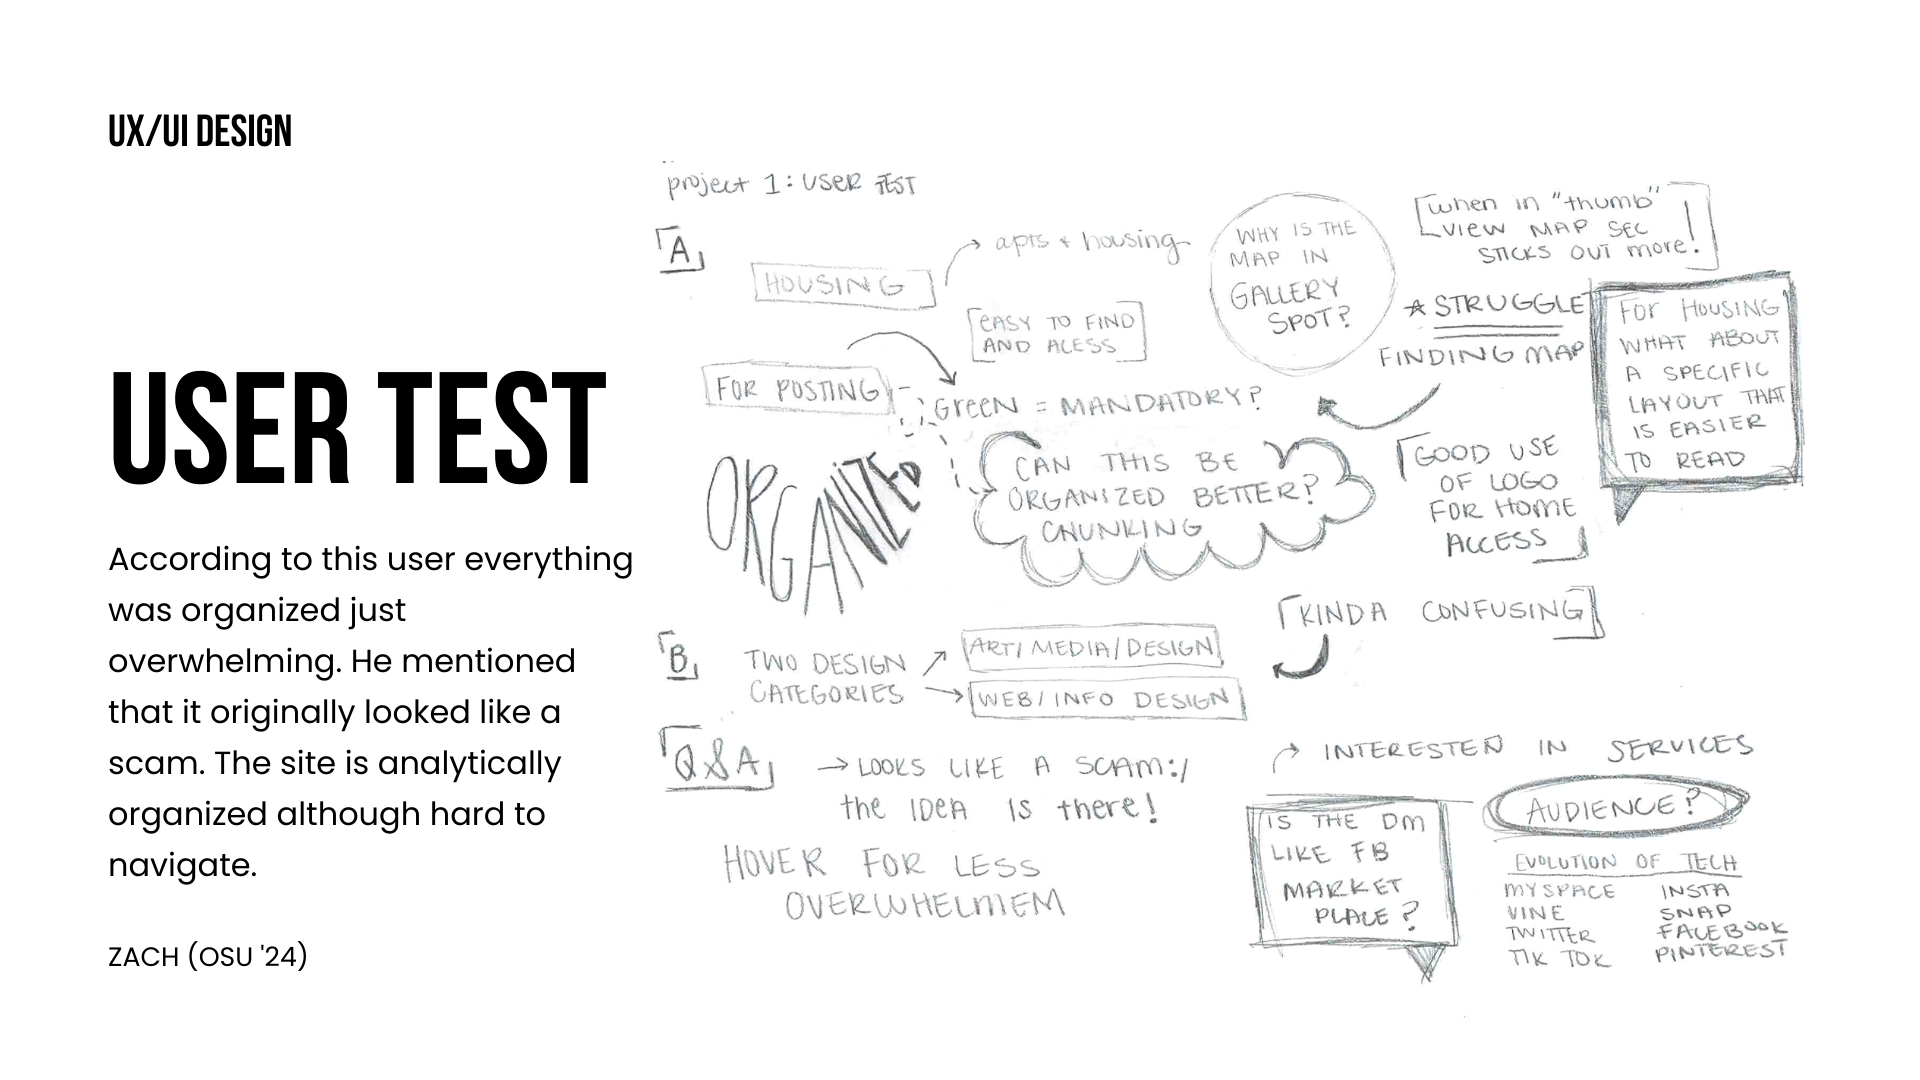 UX/UI DESIGN
USER TEST
According to this user everything
was organized just
overwhelming. He mentioned
that it originally looked like a
scam. The site is analytically
organized although hard to
navigate.
ZACH (OSU '24)
project 1: USER TEST
A
HOUSING
apts + housing
EASY TO FIND
AND ACESS
FOR POSTING
GreeN = MANDATORY?
ORGANIZED
CAN THIS BE
ORGANIZED BETTER?
CHUNKING
WHY IS THE
MAP IN
GALLERY
SPOT?
when in "thumb"
VIEW MAP SEC
STICKS OUT more!
☆ STRUGGLE
FINDING MAP
FOR HOUSING
WHAT ABOUT
A SPECIFIC
LAYOUT THAT
IS EASIER
TO READ
GOOD USE
OF LOGO
FOR HOME
ACCESS
B
TWO DESIGN
CATEGORIES
ART/MEDIA/DESIGN
WEB/INFO DESIGN
KINDA CONFUSING
Q&A
→ LOOKS LIKE A SCAM:/
the IDEA IS there!
HOVER FOR LESS
OVERWHELMEM
INTERESTEN IN SERVICES
IS THE DM
LIKE FB
MARKET
PLACE?
AUDIENCE?
EVOLUTION OF TECH
MYSPACE INSTA
VINE SNAP
TWITTER FACEBOOK
TIK TOK PINTEREST